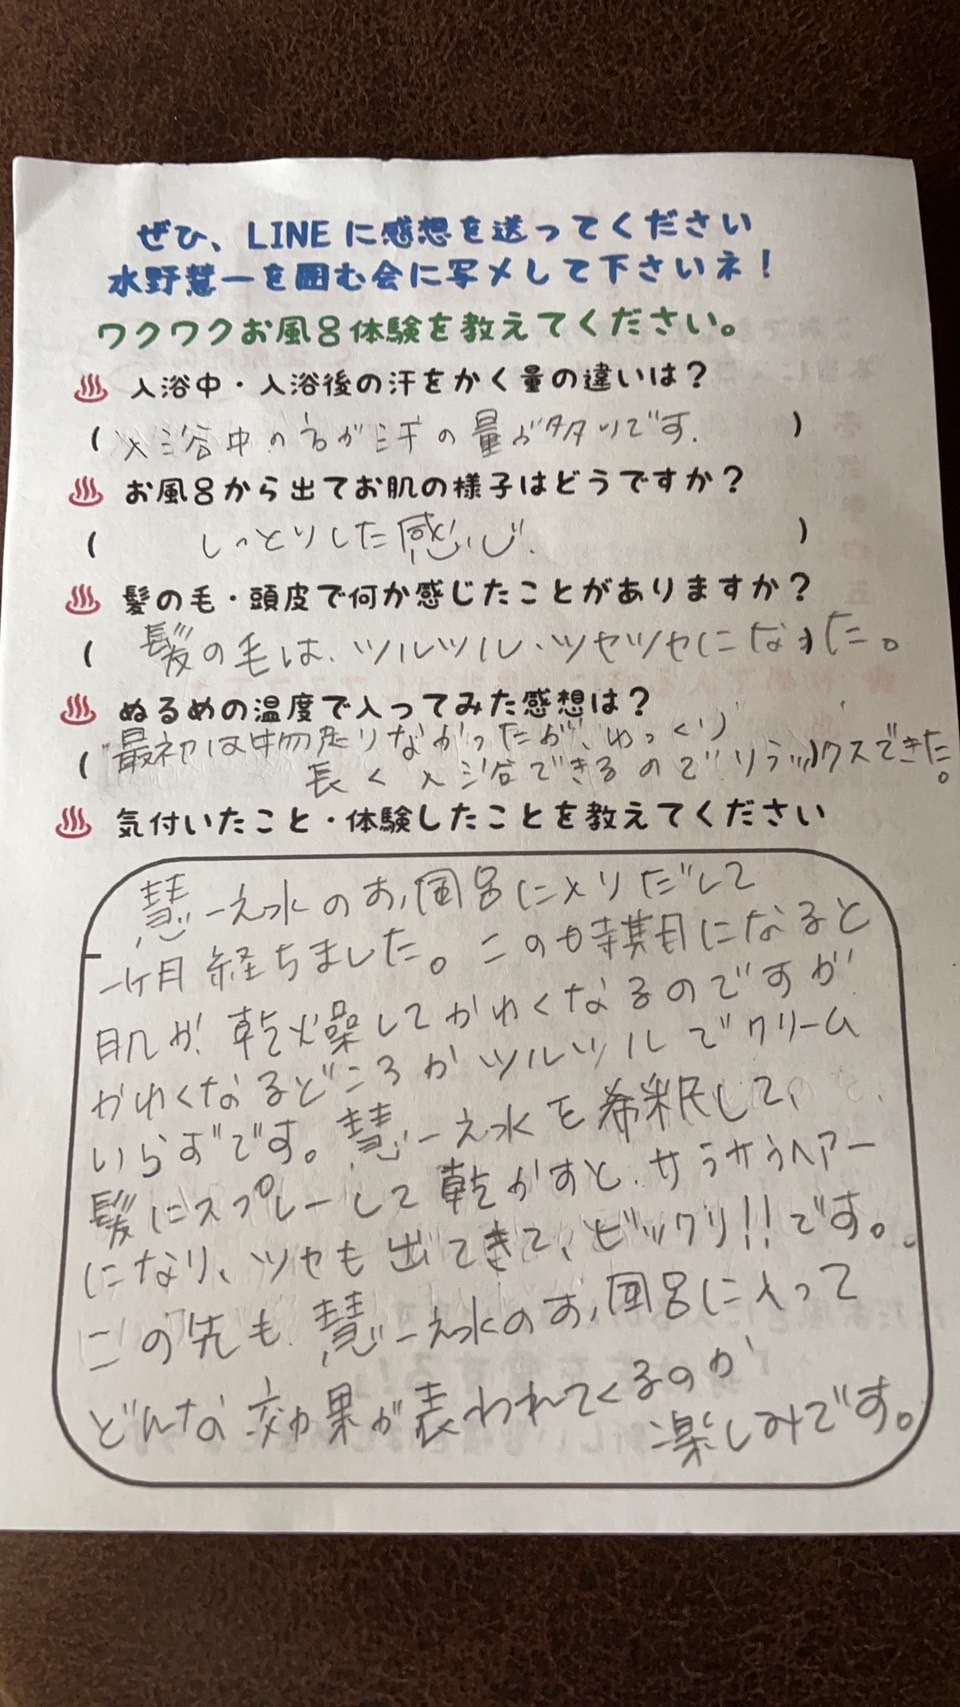 ぜひ、LINEに感想を送ってください
水野慧一を囲む会に写メして下さいネ！
ワクワクお風呂体験を教えてください。
入浴中・入浴後の汗をかく量の違いは？
(入浴中の方が汗の量が多いです.)
お風呂から出てお肌の様子はどうですか？
(しっとりした感じ.)
髪の毛・頭皮で何か感じたことがありますか？
(髪の毛は、ツルツル・ツヤツヤになった。
ぬるめの温度で入ってみた感想は？
(最初は物足りなかったが、ゆっくり
長く入浴できるのでリラックスできた。
気付いたこと・体験したことを教えてください
慧一え水のお風呂に入りだして
一ヶ月経ちました。この時期になると
肌が乾燥してかゆくなるのですが
かゆくなるどころかツルツルでクリーム
いらずです。慧一え水を希釈して、
髪にスプレーして乾かすと、サラサラヘアー
になり、ツヤも出てきて、ビックリ!!です。
この先も、慧一え水のお風呂に入って
どんな効果が表われてくるのか
楽しみです。